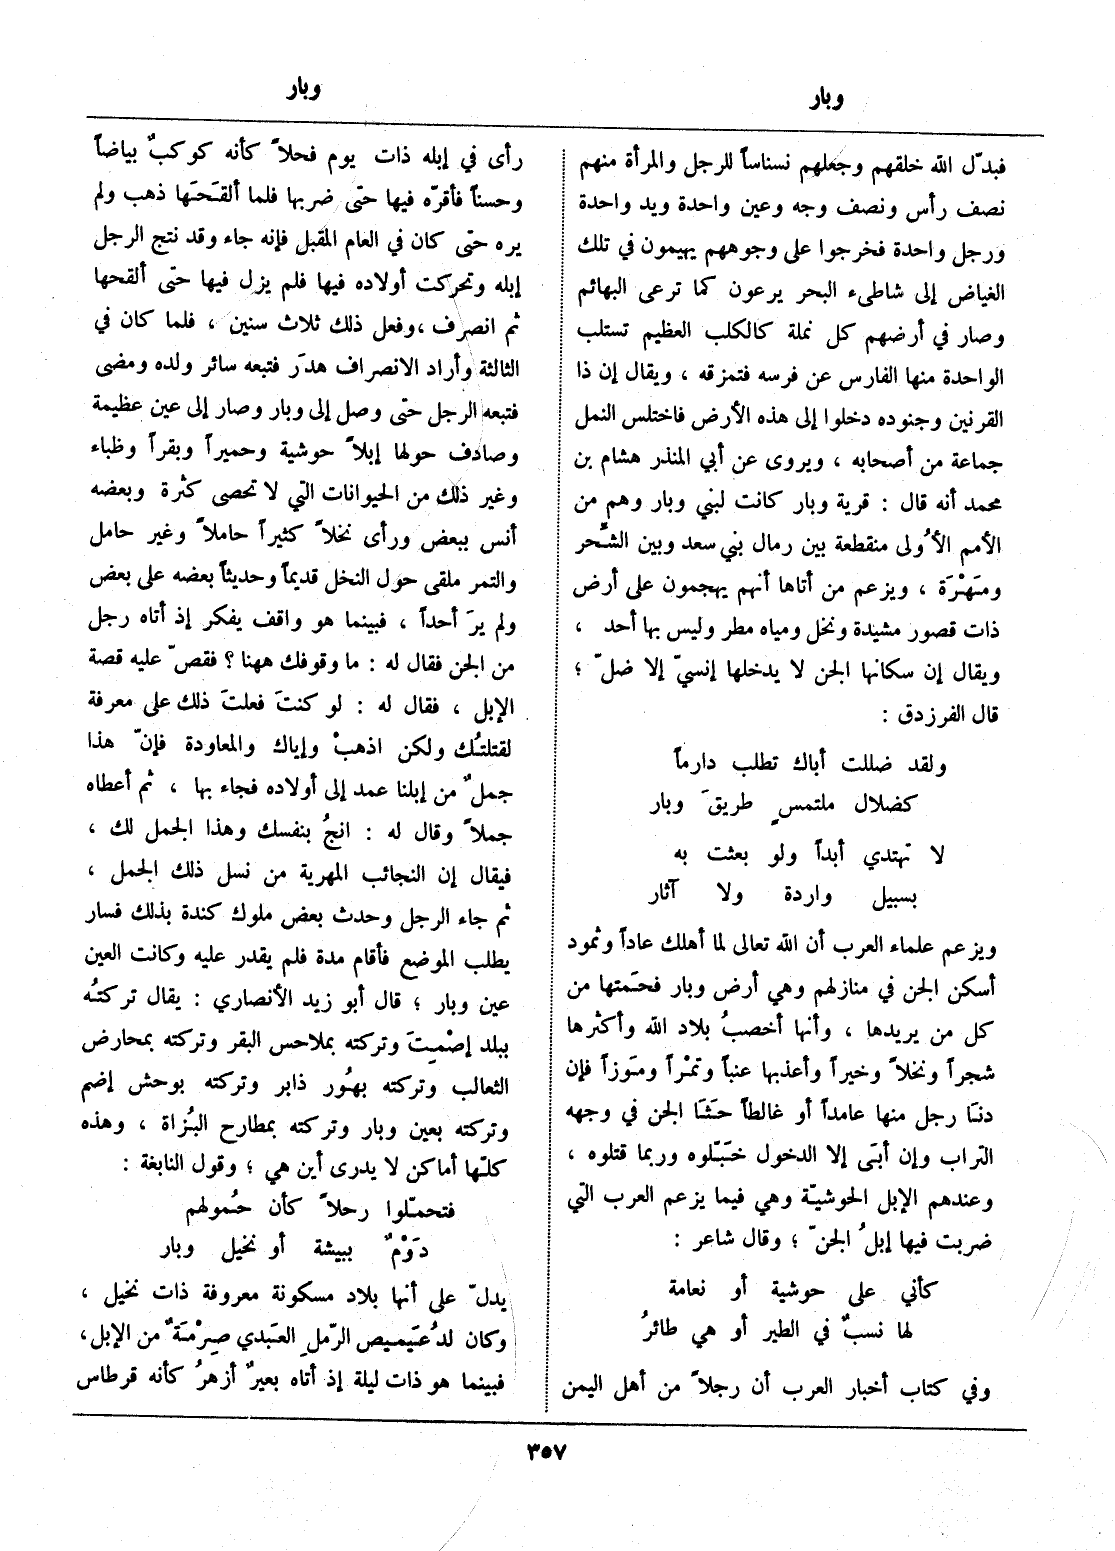 وبار
وبار
فبدّل الله خلقهم وجعلهم نسناساً للرجل والمرأة منهم
نصف رأس ونصف وجه وعين واحدة ويد واحدة
ورجل واحدة فخرجوا على وجوههم يهيمون في تلك
الغياض إلى شاطىء البحر يرعون كما ترعى البهائم
وصار في أرضهم كل نملة كالكلب العظيم تستلب
الواحدة منها الفارس عن فرسه فتمزقه ، ويقال إن ذا
القرنين وجنوده دخلوا إلى هذه الأرض فاختلس النمل
جماعة من أصحابه ، ويروى عن أبي المنذر هشام بن
محمد أنه قال : قرية وبار كانت لبني وبار وهم من
الأمم الأُولى منقطعة بين رمال بني سعد وبين الشّحر
ومَهْرَة ، ويزعم من أتاها أنهم يهجمون على أرض
ذات قصور مشيدة ونخل ومياه مطر وليس بها أحد ،
ويقال إن سكانها الجن لا يدخلها إنسيّ إلا ضلّ ؛
قال الفرزدق :
ولقد ضللت أباك تطلب دارماً
كضلال ملتمسٍ طريقَ وبار
لا تهتدي أبداً ولو بعثت به
بسبيل واردة ولا آثار
ويزعم علماء العرب أن الله تعالى لما أهلك عاداً وثمود
أسكن الجن في منازلهم وهي أرض وبار فحَمتها من
كل من يريدها ، وأنها أخصبُ بلاد الله وأكثرها
شجراً ونخلاً وخيراً وأعذبها عنباً وتمْراً ومَوزاً فإن
دنَا رجل منها عامداً أو غالطاً حثَا الجن في وجهه
التراب وإن أبَى إلا الدخول خبّلوه وربما قتلوه ،
وعندهم الإبل الحوشيّة وهي فيما يزعم العرب التي
ضربت فيها إبلُ الجنّ ؛ وقال شاعر :
كأني على حوشية أو نعامة
لها نسبٌ في الطير أو هي طائرُ
وفي كتاب أخبار العرب أن رجلاً من أهل اليمن
رأى في إبله ذات يوم فحلاً كأنه كوكبٌ بياضاً
وحسناً فأقرّه فيها حتى ضربها فلما ألقَحَها ذهب ولم
يره حتى كان في العام المقبل فإنه جاء وقد نتج الرجل
إبله وتحركت أولاده فيها فلم يزل فيها حتى ألقحها
ثم انصرف ، وفعل ذلك ثلاث سنين ، فلما كان في
الثالثة وأراد الانصراف هدَر فتبعه سائر ولده ومضى
فتبعه الرجل حتى وصل إلى وبار وصار إلى عين عظيمة
وصادف حولها إبلاً حوشية وحميراً وبقراً وظباء
وغير ذلك من الحيوانات التي لا تحصى كثرة وبعضه
أنس ببعض ورأى نخلاً كثيراً حاملاً وغير حامل
والتمر ملقى حول النخل قديماً وحديثاً بعضه على بعض
ولم يرَ أحداً ، فبينما هو واقف يفكر إذ أتاه رجل
من الجن فقال له : ما وقوفك ههنا ؟ فقصّ عليه قصة
الإبل ، فقال له : لو كنتَ فعلتَ ذلك على معرفة
لقتلتُك ولكن اذهبْ وإياك والمعاودة فإنّ هذا
جملٌ من إبلنا عمد إلى أولاده فجاء بها ، ثم أعطاه
جملاً وقال له : انجُ بنفسك وهذا الجمل لك ،
فيقال إن النجائب المهرية من نسل ذلك الجمل ،
ثم جاء الرجل وحدث بعض ملوك كندة بذلك فسار
يطلب الموضع فأقام مدة فلم يقدر عليه وكانت العين
عين وبار ؛ قال أبو زيد الأنصاري : يقال تركتُه
ببلد إصْمِتَ وتركته بملاحس البقر وتركته بمحارض
الثعالب وتركته بهُور ذابر وتركته بوحش إضم
وتركته بعين وبار وتركته بمطارح البُزاة ، وهذه
كلّها أماكن لا يدرى أين هي ؛ وقول النابغة :
فتحمّلوا رحلاً كأن حُمولهم
دَوْمٌ ببيشة أو نخيل وبار
يدلّ على أنها بلاد مسكونة معروفة ذات نخيل ،
وكان لدُعَيميص الرّملِ العَبدي صِرْمَةٌ من الإبل ،
فبينما هو ذات ليلة إذ أتاه بعيرٌ أزهرُ كأنه قرطاس
٣٥٧